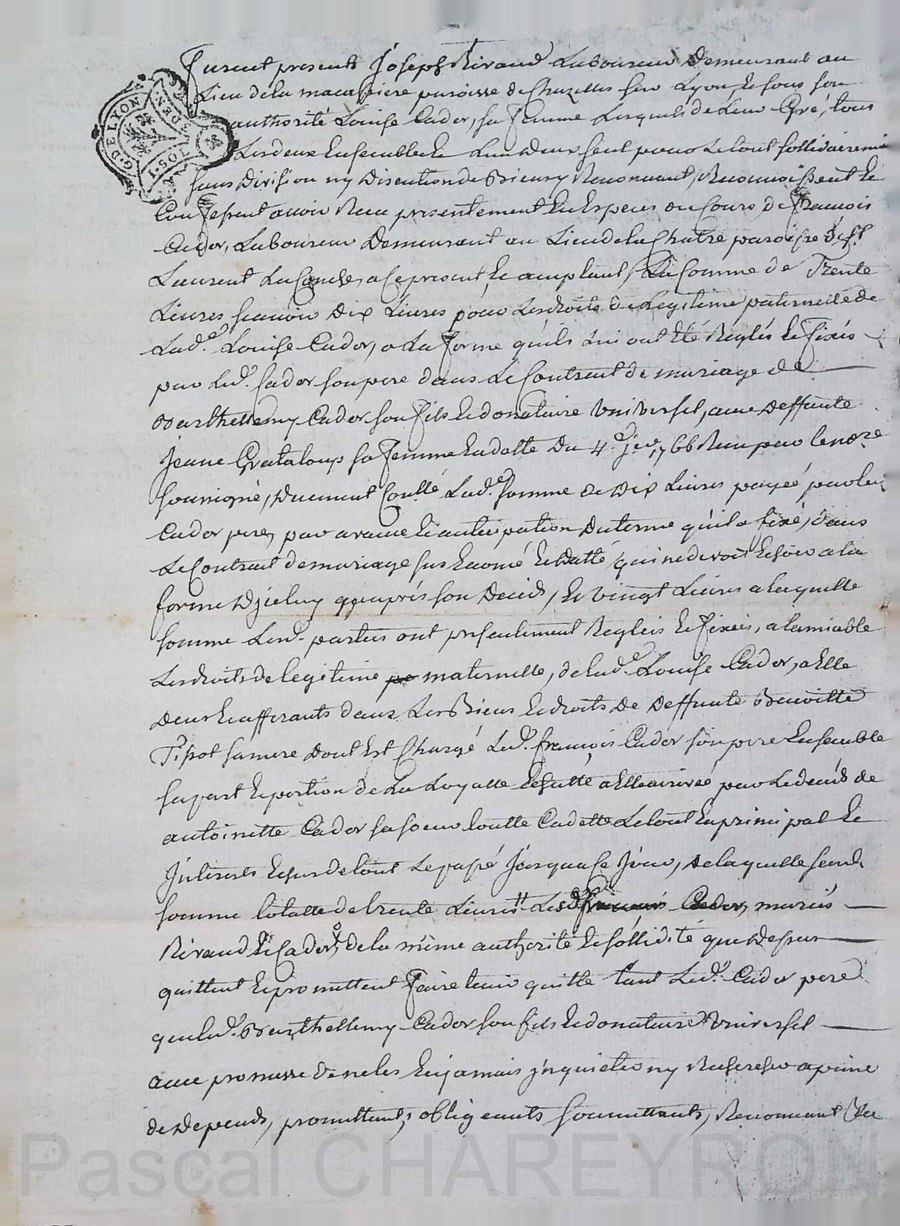 G. DE LYON
DEN
Furent presents Joseph Rivaud Laboureur Demeurant au
Lieu de la maca iere paroisse de Chazelles sur Lyon Et sous son
authorité Louise Cador, sa femme Lesquels de Leur Gré, tous
Lesdeux Ensemble Et Lun Deux seul pour Letout sollidairemt
sans Division ny Discution de Biens y Renonceant, Reconnoissent Et
Confessent avoir Receu presentement En Especes du Cours de François
Cador, Laboureur Demeurant au Lieu de la Chatre paroisse de St
Laurent a ce present, Et acceptant, La somme de Trente
Livres scavoir Dix Livres pour Les droits de Legitime paternelle de
Lade. Louise Cador, a La forme quils Lui ont Eté Reglés Et fixés
par Ledt. Cador son pere dans Le Contract de mariage de
Barthellemy Cador son fils Et donataire Universel, avec Deffunte
Jeane Grataloup sa femme En datte Du 4e. Jer. 1766 Receu par Le nore
soussigné, Duement Conllé Lade. somme de Dix Livres payée par Led.
Cador pere, par avance Et anticipation Du terme quil a fixé, dans
Le Contract de mariage sus Enoncé Et datté qui ne devoit Echoir a la
forme Djceluy quaprés son Decéd, Et vingt Livres a laquelle
somme Lesd. parties ont presentement Reglés Et fixés, a lamiable
Les droits de legitime pa maternelle, de lade. Louise Cador, a Elle
Deus Et afferants dans Les Biens Et droits De Deffunte Benoitte
Tipot sa mere Dont Est Chargé Ledt. françois Cador son pere Ensemble
sa part Et portion de La Loyalle Echutte a Elle arrivée par Le decéd de
antoinette Cador sa soeur toutte Cadette Le tout En principal Et
Jnterets Echus de tout Le passé Jusqua Ce Jour, De laquelle
somme totalle de trente Livres Lesd françois Cador, mariés
Rivaud Et Cador, de la même authorité Et sollidité que Dessus
quittent Et promettent faire tenir quitte tant Ledt. Cador pere
que Ledt. Barthellemy Cador son fils Et donataire Universel
avec promesse de ne les En jamais jnquieter ny Rechercher a peine
de Depends, promettants, obligeants soumettants, Renonceant
Pascal CHAREYRON